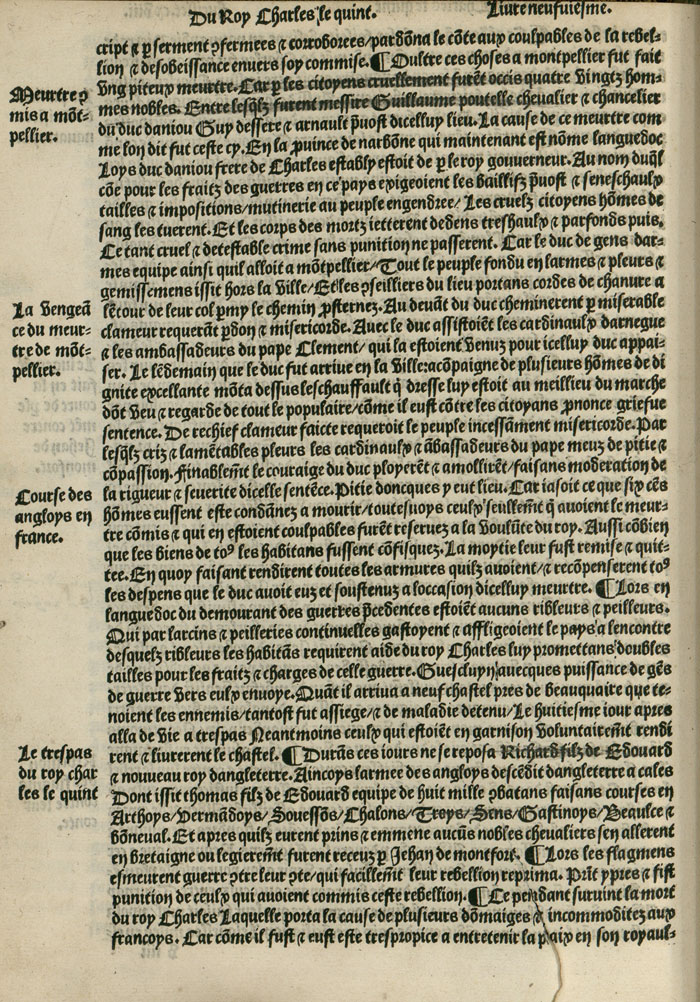 Du Roy Charles le quint. Livre neufuiesme.
cript & ꝑ serment ꝯfermees & corroborees/pardõna le cõte aux coulpables de la rebel-
lion & desobeissance envers soy commise. ¶Oultre ces choses a montpellier fut fait
Meurtre ꝯ
mis a mõt-
pellier.
vng piteux meurtre. Car ꝑ les citoyens cruellement furẽt occis quatre vingtz hom-
mes nobles. Entre lesq̃lz furent messire Guillaume pontelle chevalier & chancelier
du duc daniou Guy dessere & arnault p̃uost dicelluy lieu. La cause de ce meurtre com
me lon dit fut ceste cy. En la ꝓuince de narbõne qui maintenant est nõme languedoc
Loys duc daniou frere de Charles estably estoit de ꝑ le roy gouuerneur. Au nom duq̃l
cõe pour les fraitz des guerres en ce pays exigeoient les baillifz p̃uost & seneschaulx
tailles & impositions/mutinerie au peuple engendree/ Les cruelz citoyens hõmes de
sang les tuerent. Et les corps des mortz ietterent dedens treshaulx & parfonds puis.
Ce tant cruel & detestable crime sans punition ne passerent. Car le duc de gens dar-
mes equipe ainsi quil alloit a mõtpellier/Tout le peuple fondu en larmes & pleurs &
gemissemens issit hors la ville/ Et les ꝯseilliers du lieu portans cordes de chanure a
La vengeã
ce du meur-
tre de mõt-
pellier.
lẽtour de leur col ꝑmy le chemin ꝓsternez. Au deuãt du duc cheminerent ꝑ miserable
clameur requerãt ꝑdõn & misericorde. Avec le duc assistoiẽt les cardinaulx darnegue
& les ambassadeurs du pape Clement/ qui la estoient venuz pour icelluy duc appai-
ser. Le lẽdemain que le duc fut arrive en la ville:acõpaigne de plusieurs hõmes de di
gnite excellante mõta dessus leschauffault q̃ dresse luy estoit au meillieu du marche
dõt veu & regarde de tout le populaire/cõme il eust cõtre les citoyans ꝓnonce griefue
sentence. De rechief clameur faicte requeroit le peuple incessãment misericorde. Par
lesq̃lz criz & lamẽtables pleurs les cardinaulx & ãbassadeurs du pape meuz de pitie &
cõpassion. Finablemẽt le couraige du duc ployerẽt & amollirẽt/faisans moderation de
Course des
angloys en
france.
la rigueur & severite dicelle sentẽce. Pitie doncques y eut lieu. Car iasoit ce que six cẽs
hõmes eussent este condãnez a mourir/toutesuoys ceulx seullemẽt q̃ auoient le meur-
tre cõmis & qui en estoient coulpables furẽt reseruez a la voulũte du roy. Aussi cõbien
que les biens de toꝰ les habitans fussent cõfisquez. La moytie leur fust remise & quit-
tee. En quoy faisant rendirent toutes les armures quilz auoient/& recõpenserent toꝰ
les despens que le duc auoit euz et soustenuz a loccasion dicelluy meurtre. ¶Lors en
languedoc du demourant des guerres p̃cedentes estoiẽt aucuns ribleurs & peilleurs.
Qui par larcins & peilleries continuelles gastoyent & affligeoient le pays a lencontre
desquelz ribleurs les habitãs requirent aide du roy Charles luy promettans doubles
tailles pour les fraitz & charges de celle guerre. Guesclu yn auecques puissance de gẽs
de guerre vers eulx envoye. Quãt il arriua a neuf chastel pres de beauquaire que te-
noient les ennemis/tantost fut assiege/& de maladie detenu/Le huitiesme iour apres
alla de vie a trespas Neantmoins ceulx qui estoiẽt en garnison voluntairemẽt rendi
Le trespas
du roy char
les le quint
rent & liurerent le chastel. ¶Durãs ces iours ne se reposa Richard filz de Edouard
& nouveau roy dangleterre. Aincoys larmee des angloys descẽdit dangleterre a cales
Dont issit thomas filz de Edouard equipe de huit mille ꝯbatans faisans courses en
Arthoys/vermãdoys/Souessõs/Chalons/Troys/Sens/Gastinoys/Beaulce &
bõneval. Et apres quilz eurent prins & emmene aucũs nobles chevaliers sen allerent
en bretaigne ou legieremẽt furent receuz ꝑ Jehan de montfort. ¶Lors les flagmens
esmeurent guerre ꝯtre leur ꝯte/qui facillemẽt leur rebellion reprima. Prĩt ypres & fist
punition de ceulx qui auoient commis ceste rebellion. ¶Ce pendant suruint la mort
du roy Charles Laquelle porta la cause de plusieurs dõmaiges & incommoditez aux
francoys. Car cõme il fust & eust este trespropice a entretenir la paix en son royaul-